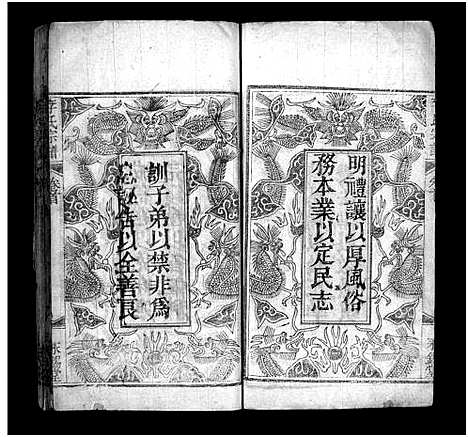 明禮讓以厚風俗
務本業以定民志
訓子弟以禁非爲
息誣告以全善良
氏宗譜
卷首